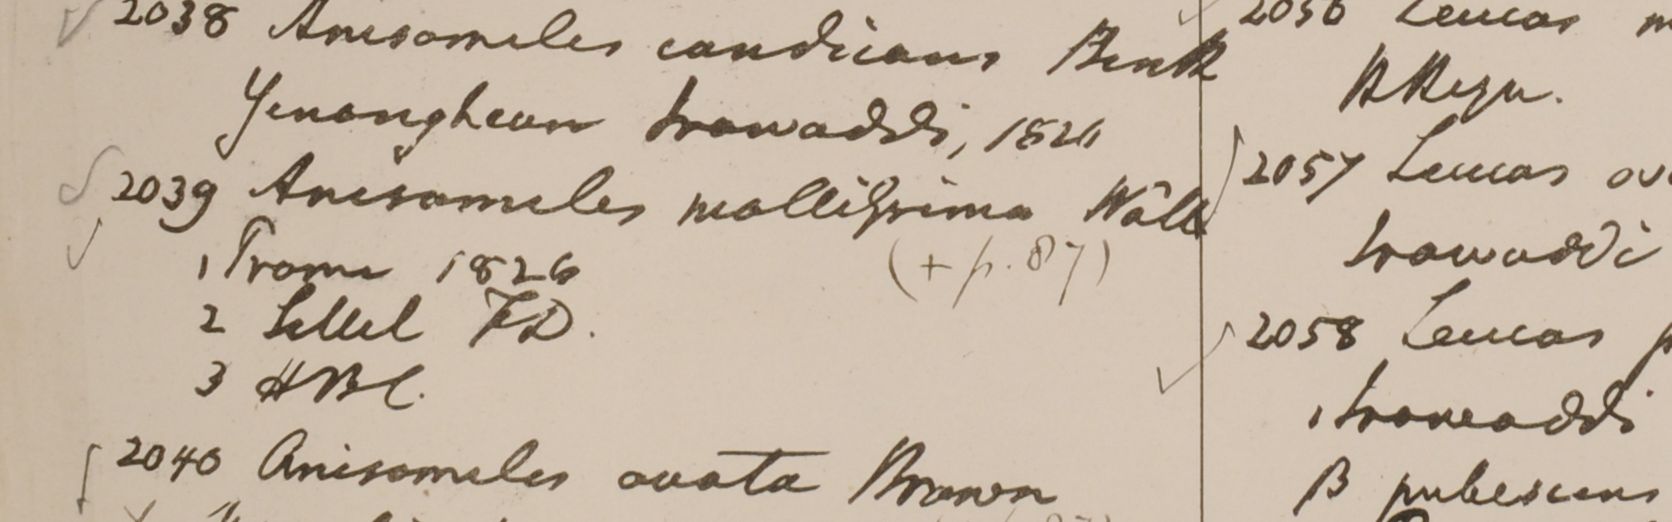 2038 Anisomeles candicans Benth
Yenangheun Irawaddi, 1826
2039 Anisomeles mollissima Wall
(+ p. 87)
1 Prome 1826
2 Sillet FD.
3 HBC.
2040 Anisomeles ovata Brown
2056 Leucas m
2057 Leucas ov
Irawaddi
2058 Leucas p
1 Irawaddi
B pubescens